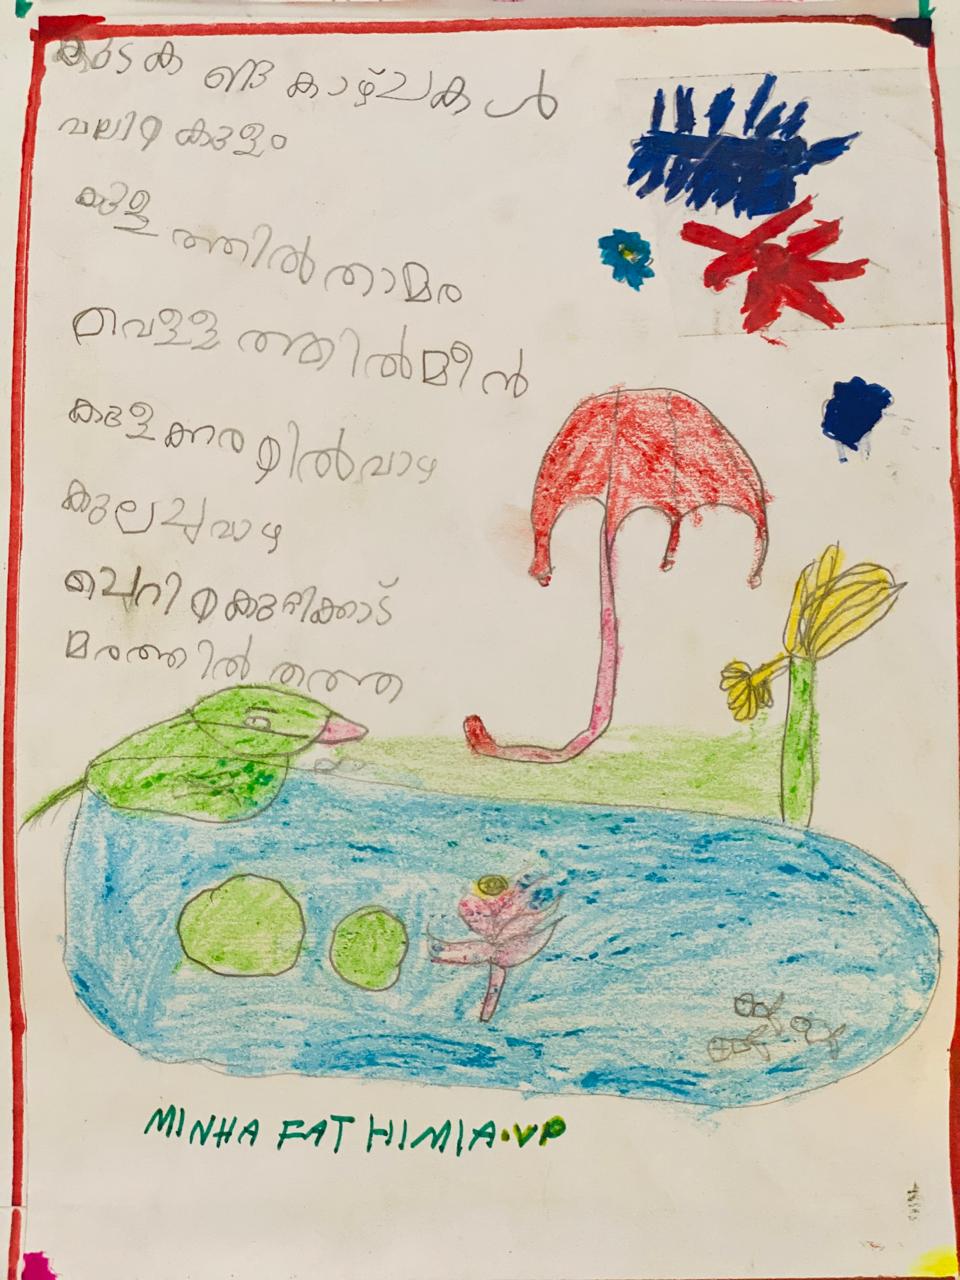 കുട കണ്ട കാഴ്ചകൾ
വലിയ കുളം
കുളത്തിൽ താമര
വെള്ളത്തിൽ മീൻ
കുളക്കരയിൽ വാഴ
കുലച്ച വാഴ
ചെറിയ കുറ്റിക്കാട്
മരത്തിൽ തത്ത
MINHA FATHIMIA.VP